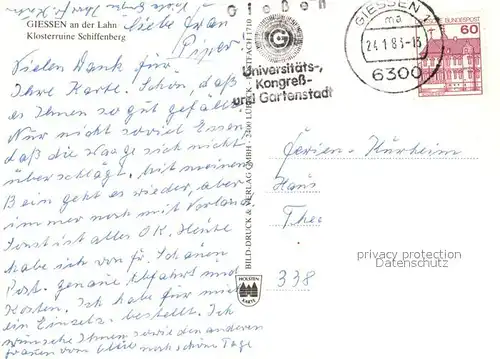 GIESSEN an der Lahn
Klosterruine Schiffenberg
Liebe Frau
Piper
Vielen Dank für
Ihre Karte. Schön, daß
es Ihnen so gut gefällt.
Nur nicht soviel Essen
daß die Waage sich nicht
überschlägt. Mit meinem
Bein geht es wieder, aber
immer noch mit Verband.
Sonst ist alles OK. Heute
habe ich von
Post. genaue Abfahrt und
Kosten. Ich habe für mich
ein Einzelz. bestellt. Ich
wünsche Ihnen sowie den anderen
Frauen noch schöne Tage
BILD-DRUCK & VERLAG GMBH · 2400 LÜBECK · POSTFACH 1710
HOLSTEN
KARTE
Gießen
Universitäts-,
Kongreß-
und Gartenstadt
GIESSEN 2
ma
24.1.83-18
6300
DEUTSCHE BUNDESPOST
60
Ferien-
Haus
Thee
338
privacy protection
Datenschutz